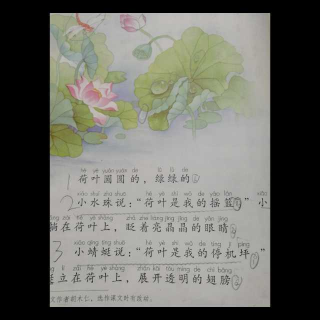 hé yè yuán yuán de lǜ lǜ de
1 荷叶圆圆的，绿绿的
xiǎo shuǐ zhū shuō hé yè shì wǒ de yáo lán xiǎo
2 小水珠说：“荷叶是我的摇篮。” 小
zài hé yè shàng zhǎ zhe liàng jīng jīng de yǎn jīng
躺在荷叶上，眨着亮晶晶的眼睛
xiǎo qīng tíng shuō hé yè shì wǒ de tíng jī píng
3 小蜻蜓说：“荷叶是我的停机坪。”
lì zài hé yè shàng zhǎn kāi tòu míng de chì bǎng
立在荷叶上，展开透明的翅膀
文作者胡木仁，选作课文时有改动。